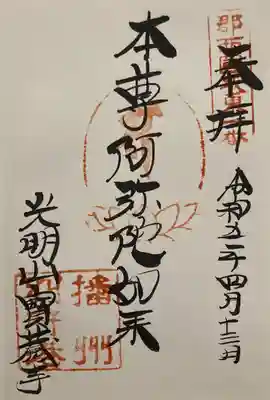 奉拝
令和五年四月十三日
本尊阿弥陀如来
光明山寶蔵寺
播州